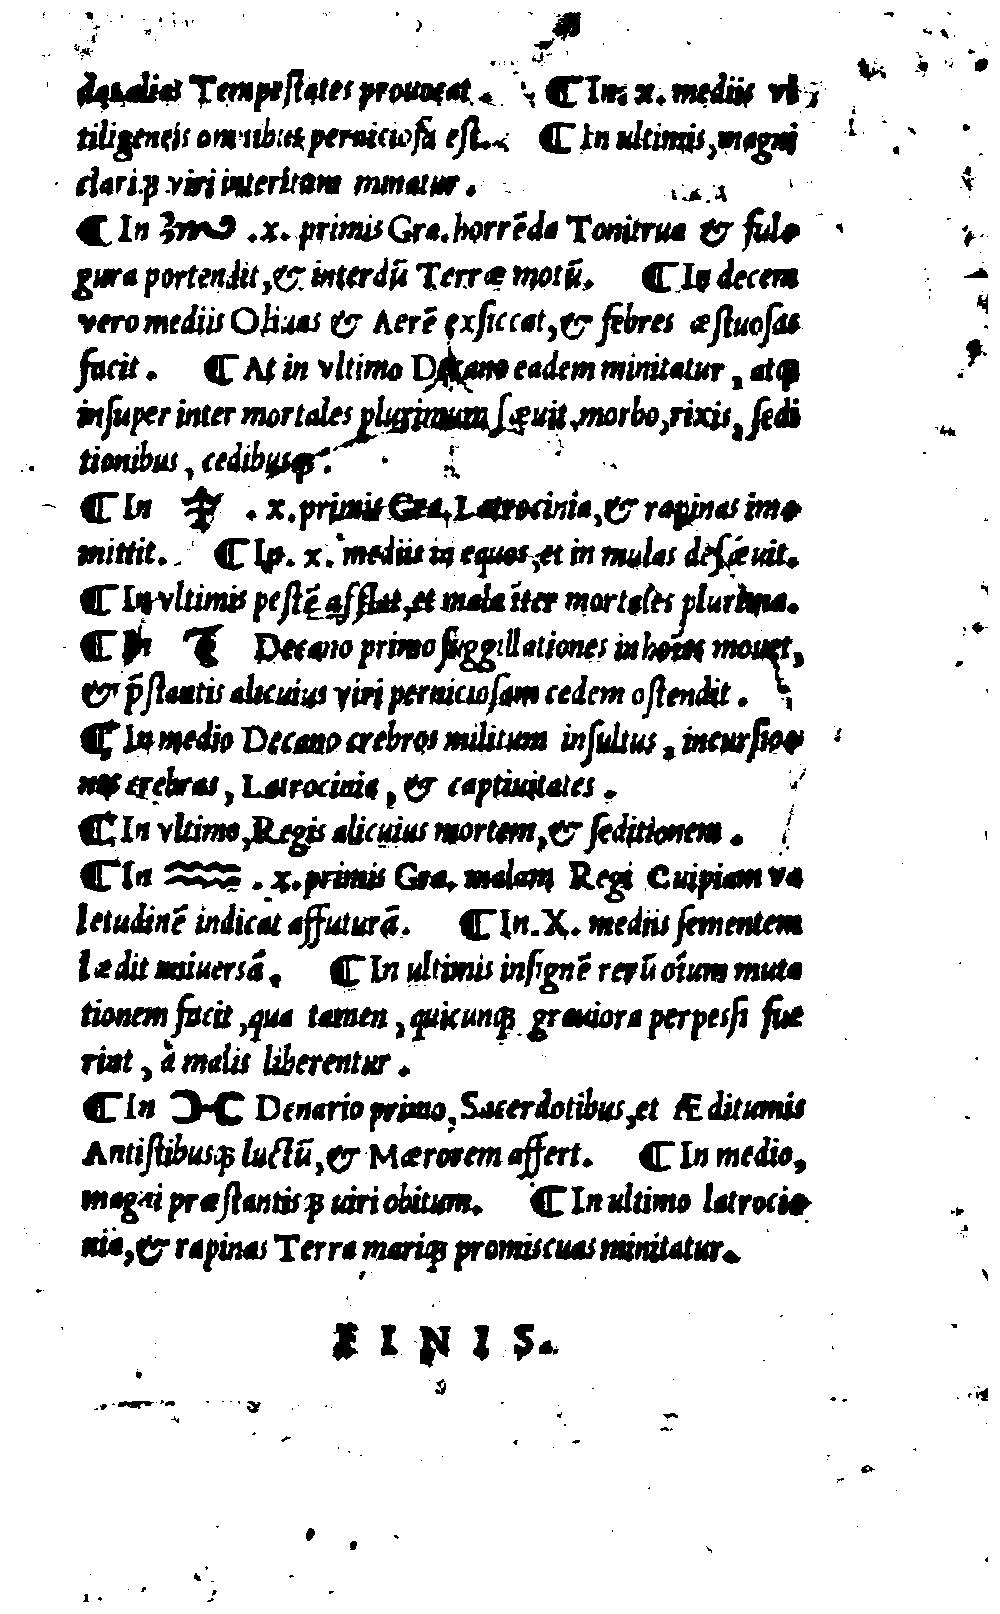 dasalias Tempeſtates prouocat. ¶ In. x. mediis vi
tiligeneis omnibus pernicioſa eſt. ¶ In ultimis, magni
clariqꝫ viri interitum minatur.
¶ In ♏ .x. primis Gra. horrẽda Tonitrua & ful⸗
gura portendit, & interdũ Terræ motũ. ¶ In decem
vero mediis Oliuas & Aerẽ exſiccat, & febres æſtuoſas
facit. ¶ At in vltimo Decano eadem minitatur, atqꝫ
inſuper inter mortales plurimum ſæuit, morbo, rixis, ſedi
tionibus, cedibusqꝫ.
¶ In ♐ . x. primis Gra. Latrocinia, & rapinas imo⸗
mittit. ¶ In. x. mediis in equos, et in mulas deſæuit.
¶ In vltimis peſtẽ afflat, et mala ĩter mortales plurima.
¶ In ♑ Decano primo ſuggillationes in hoĩes mouet,
& p̃ſtantis alicuius viri pernicioſam cedem oſtendit.
¶ In medio Decano crebros militum inſultus, incurſio⸗
nes crebras, Latrocinia, & captiuitates.
¶ In vltimo, Regis alicuius mortem, & ſeditionem.
¶ In ♒ . x. primis Gra. malam Regi Cuipiam va
letudinẽ indicat affuturã. ¶ In. X. mediis ſementem
lædit vniuersã. ¶ In ultimis inſignẽ rerũ oĩum muta
tionem facit, qua tamen, quicunqꝫ grauiora perpeſſi fue
rint, à malis liberentur.
¶ In ♓ Denario primo, Sacerdotibus, et Æditumis
Antiſtibusqꝫ luctũ, & Mærorem affert. ¶ In medio,
magni præſtantisqꝫ uiri obitum. ¶ In ultimo latroci⸗
nia, & rapinas Terra mariqꝫ promiscuas minitatur.
FINIS.